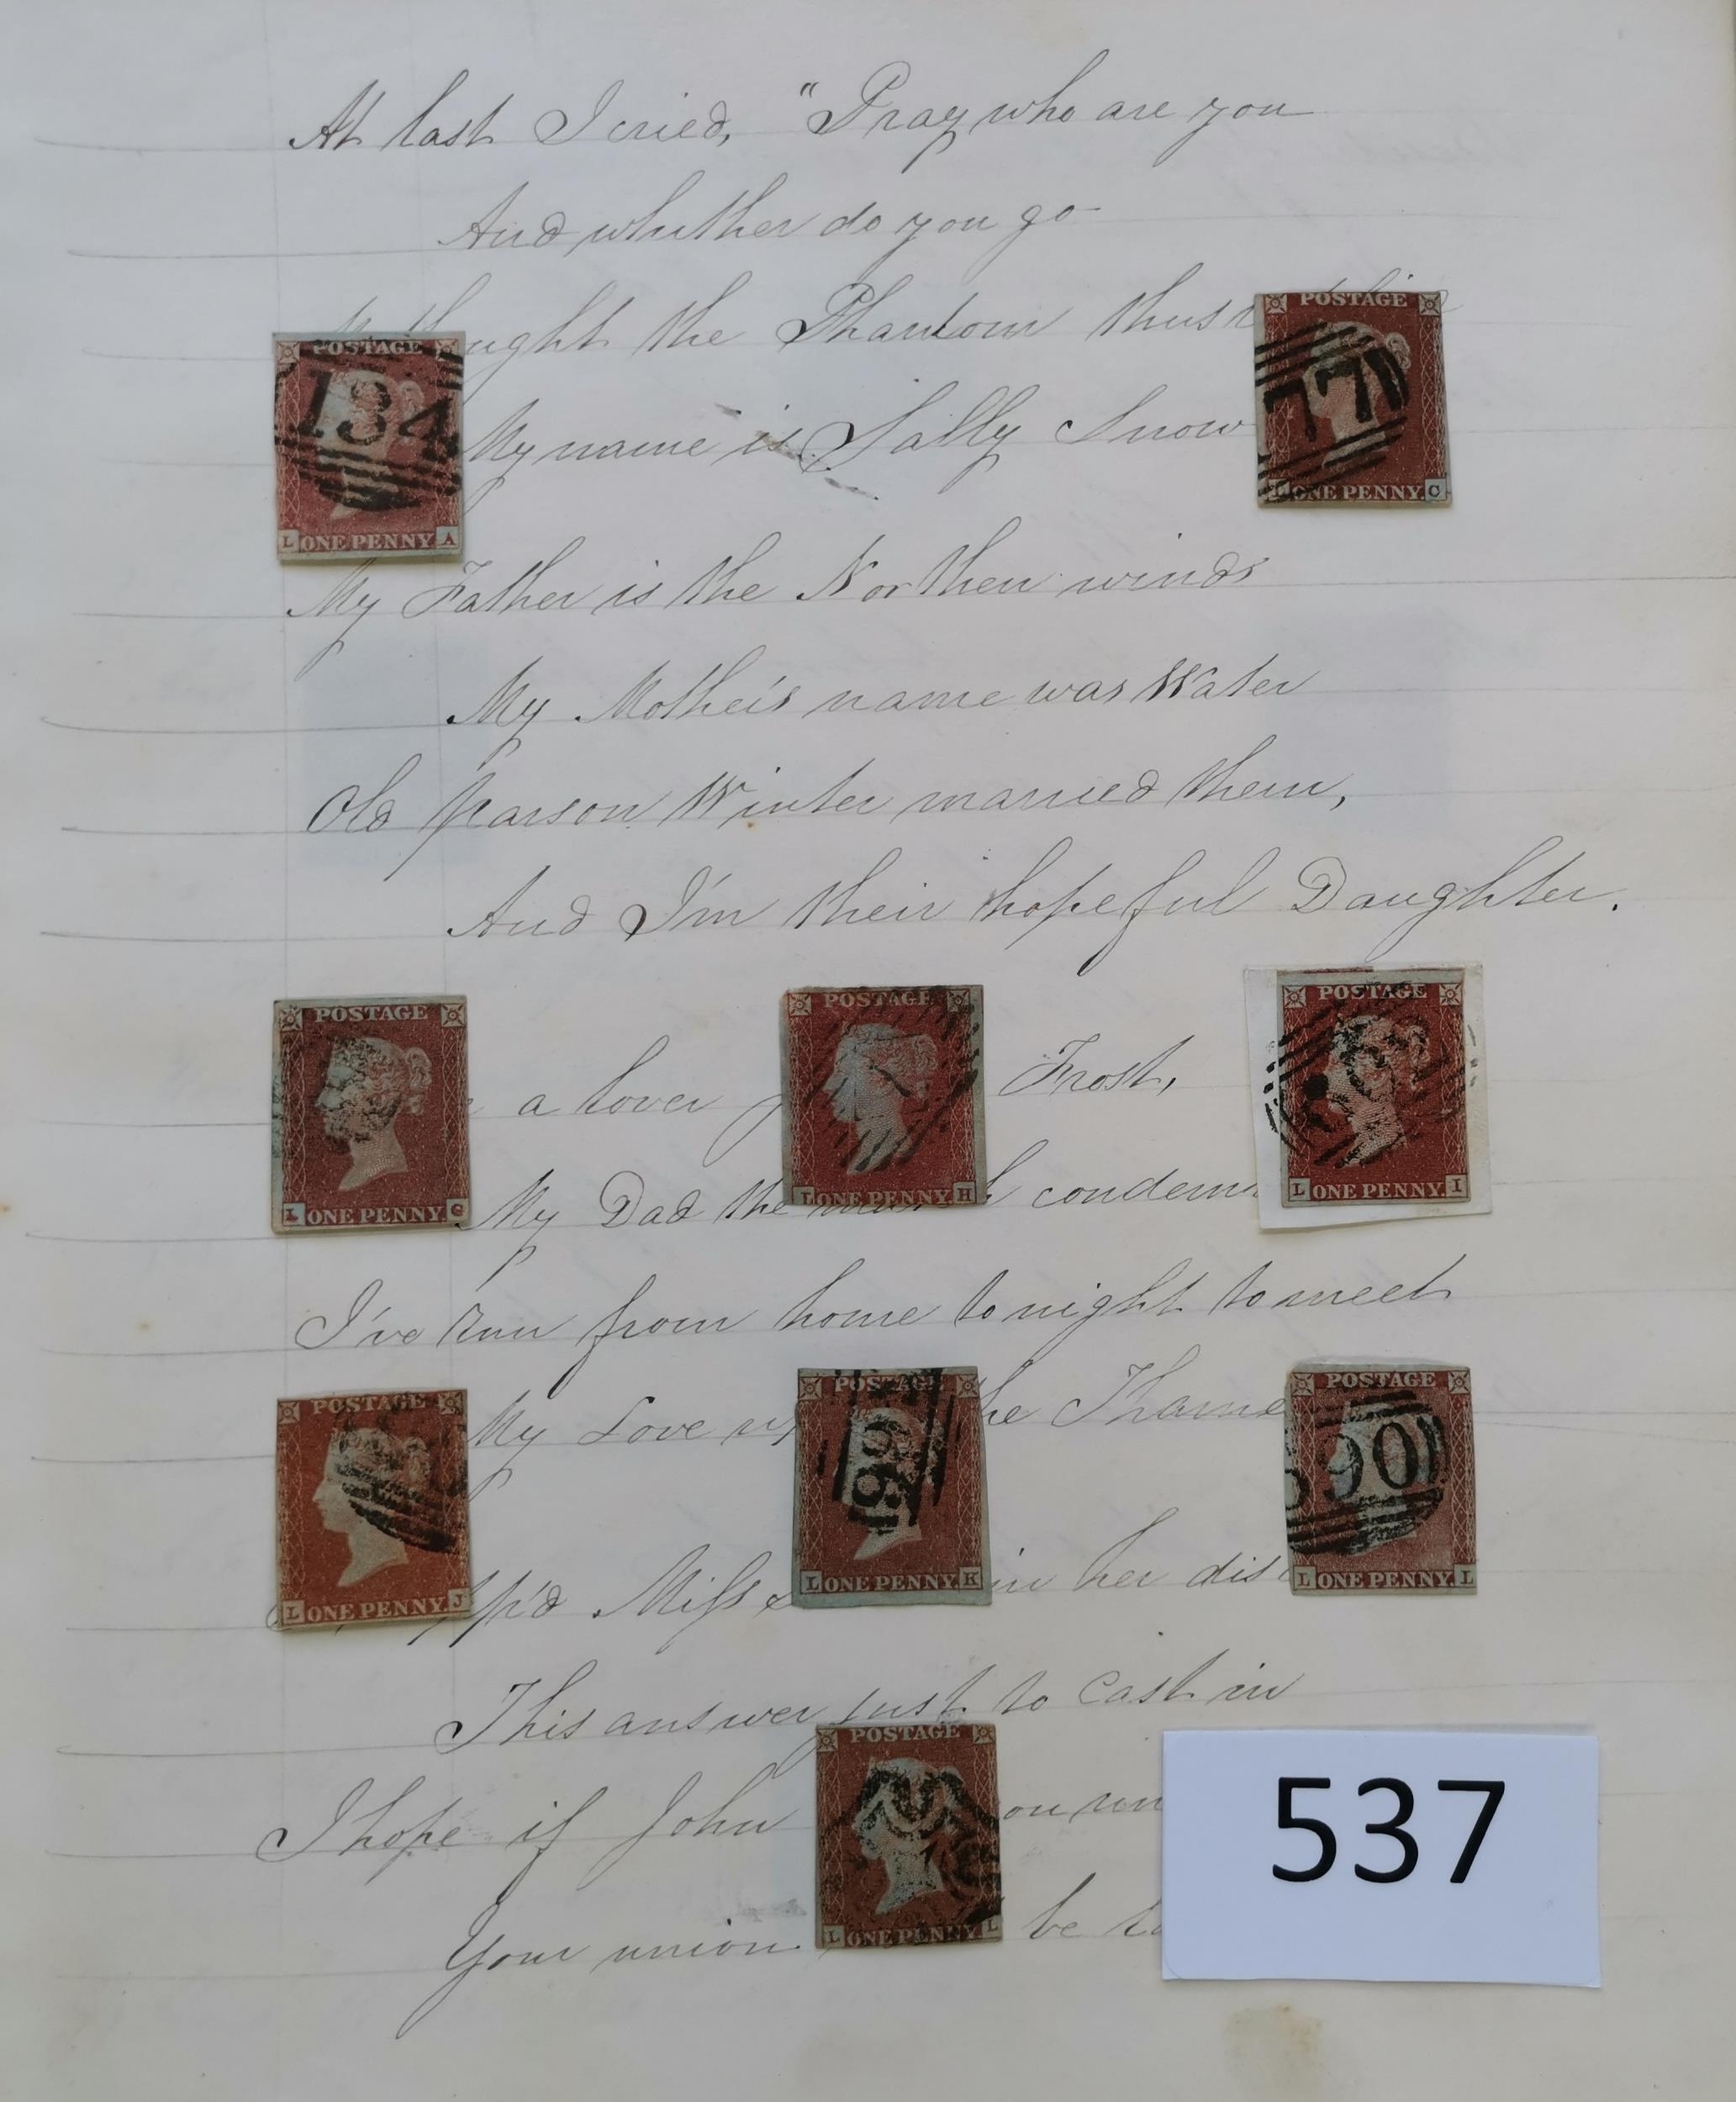 At last I cried, "Pray who are you
And whither do you go
ught the Phantom thus
My name is Sally Snow
My Father is the Northen winds
My Mother's name was Water
Old parson Winter married them,
And I'm their hopeful Daughter.
a lover Frost,
My Dad the condem
I've run from home to night to meet
My Love he Thame
p'd Miss in her dis
This answer just to cast in
I hope if John ou
Your union be to
POSTAGE
134
L ONE PENNY A
POSTAGE
77
L ONE PENNY C
POSTAGE
L ONE PENNY G
POSTAGE
L ONE PENNY H
POSTAGE
L ONE PENNY I
POSTAGE
L ONE PENNY J
POSTAGE
66
L ONE PENNY K
POSTAGE
90
L ONE PENNY L
POSTAGE
L ONE PENNY L
537